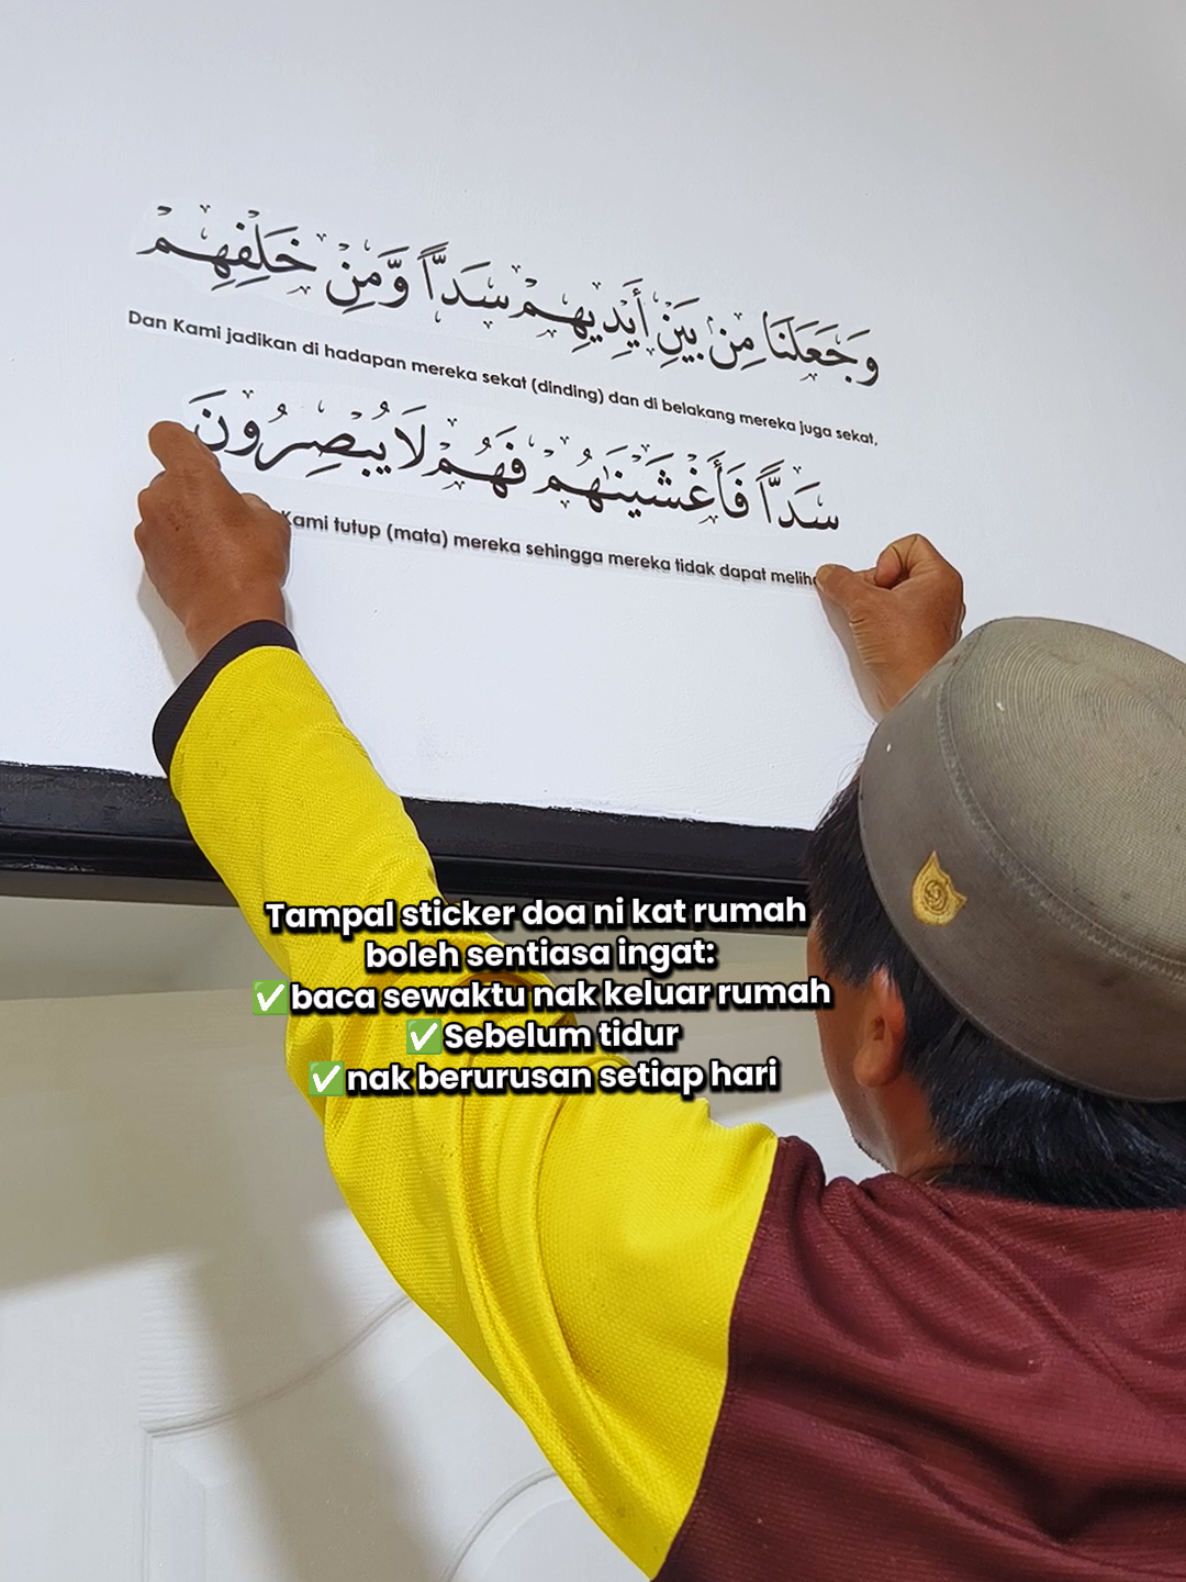 وَجَعَلْنَا مِنْ بَيْنِ أَيْدِيهِمْ سَدًّا وَّمِنْ خَلْفِهِمْ
Dan Kami jadikan di hadapan mereka sekat (dinding) dan di belakang mereka juga sekat.
سَدًّا فَأَغْشَيْنٰهُمْ فَهُمْ لَا يُبْصِرُونَ
Kami tutup (mata) mereka sehingga mereka tidak dapat meliha
Tampal sticker doa ni kat rumah
boleh sentiasa ingat:
✅baca sewaktu nak keluar rumah
✅Sebelum tidur
✅nak berurusan setiap hari